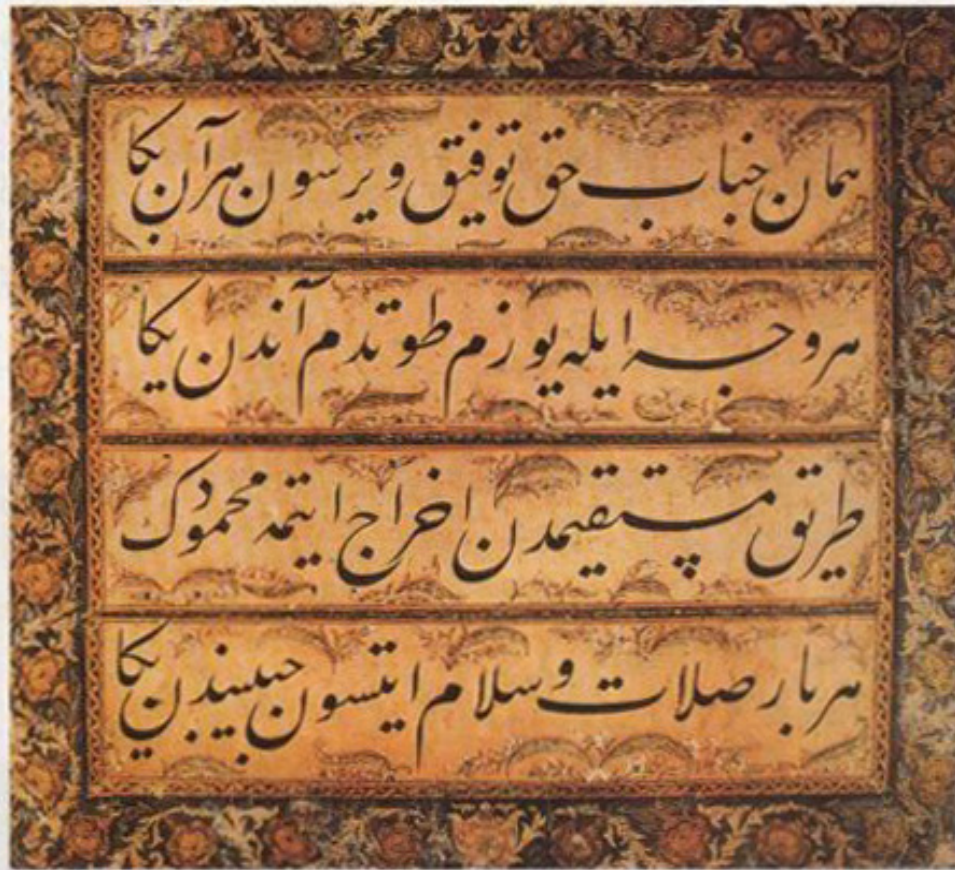 همان جناب حق توفيق ويرسون هر آن بكا
هر وجه ايله يوزم طوتدم آندن يكا
طريق مستقيمدن اخراج ايتمه محمودك
هر بار صلات و سلام ايتسون حبيبندن بكا